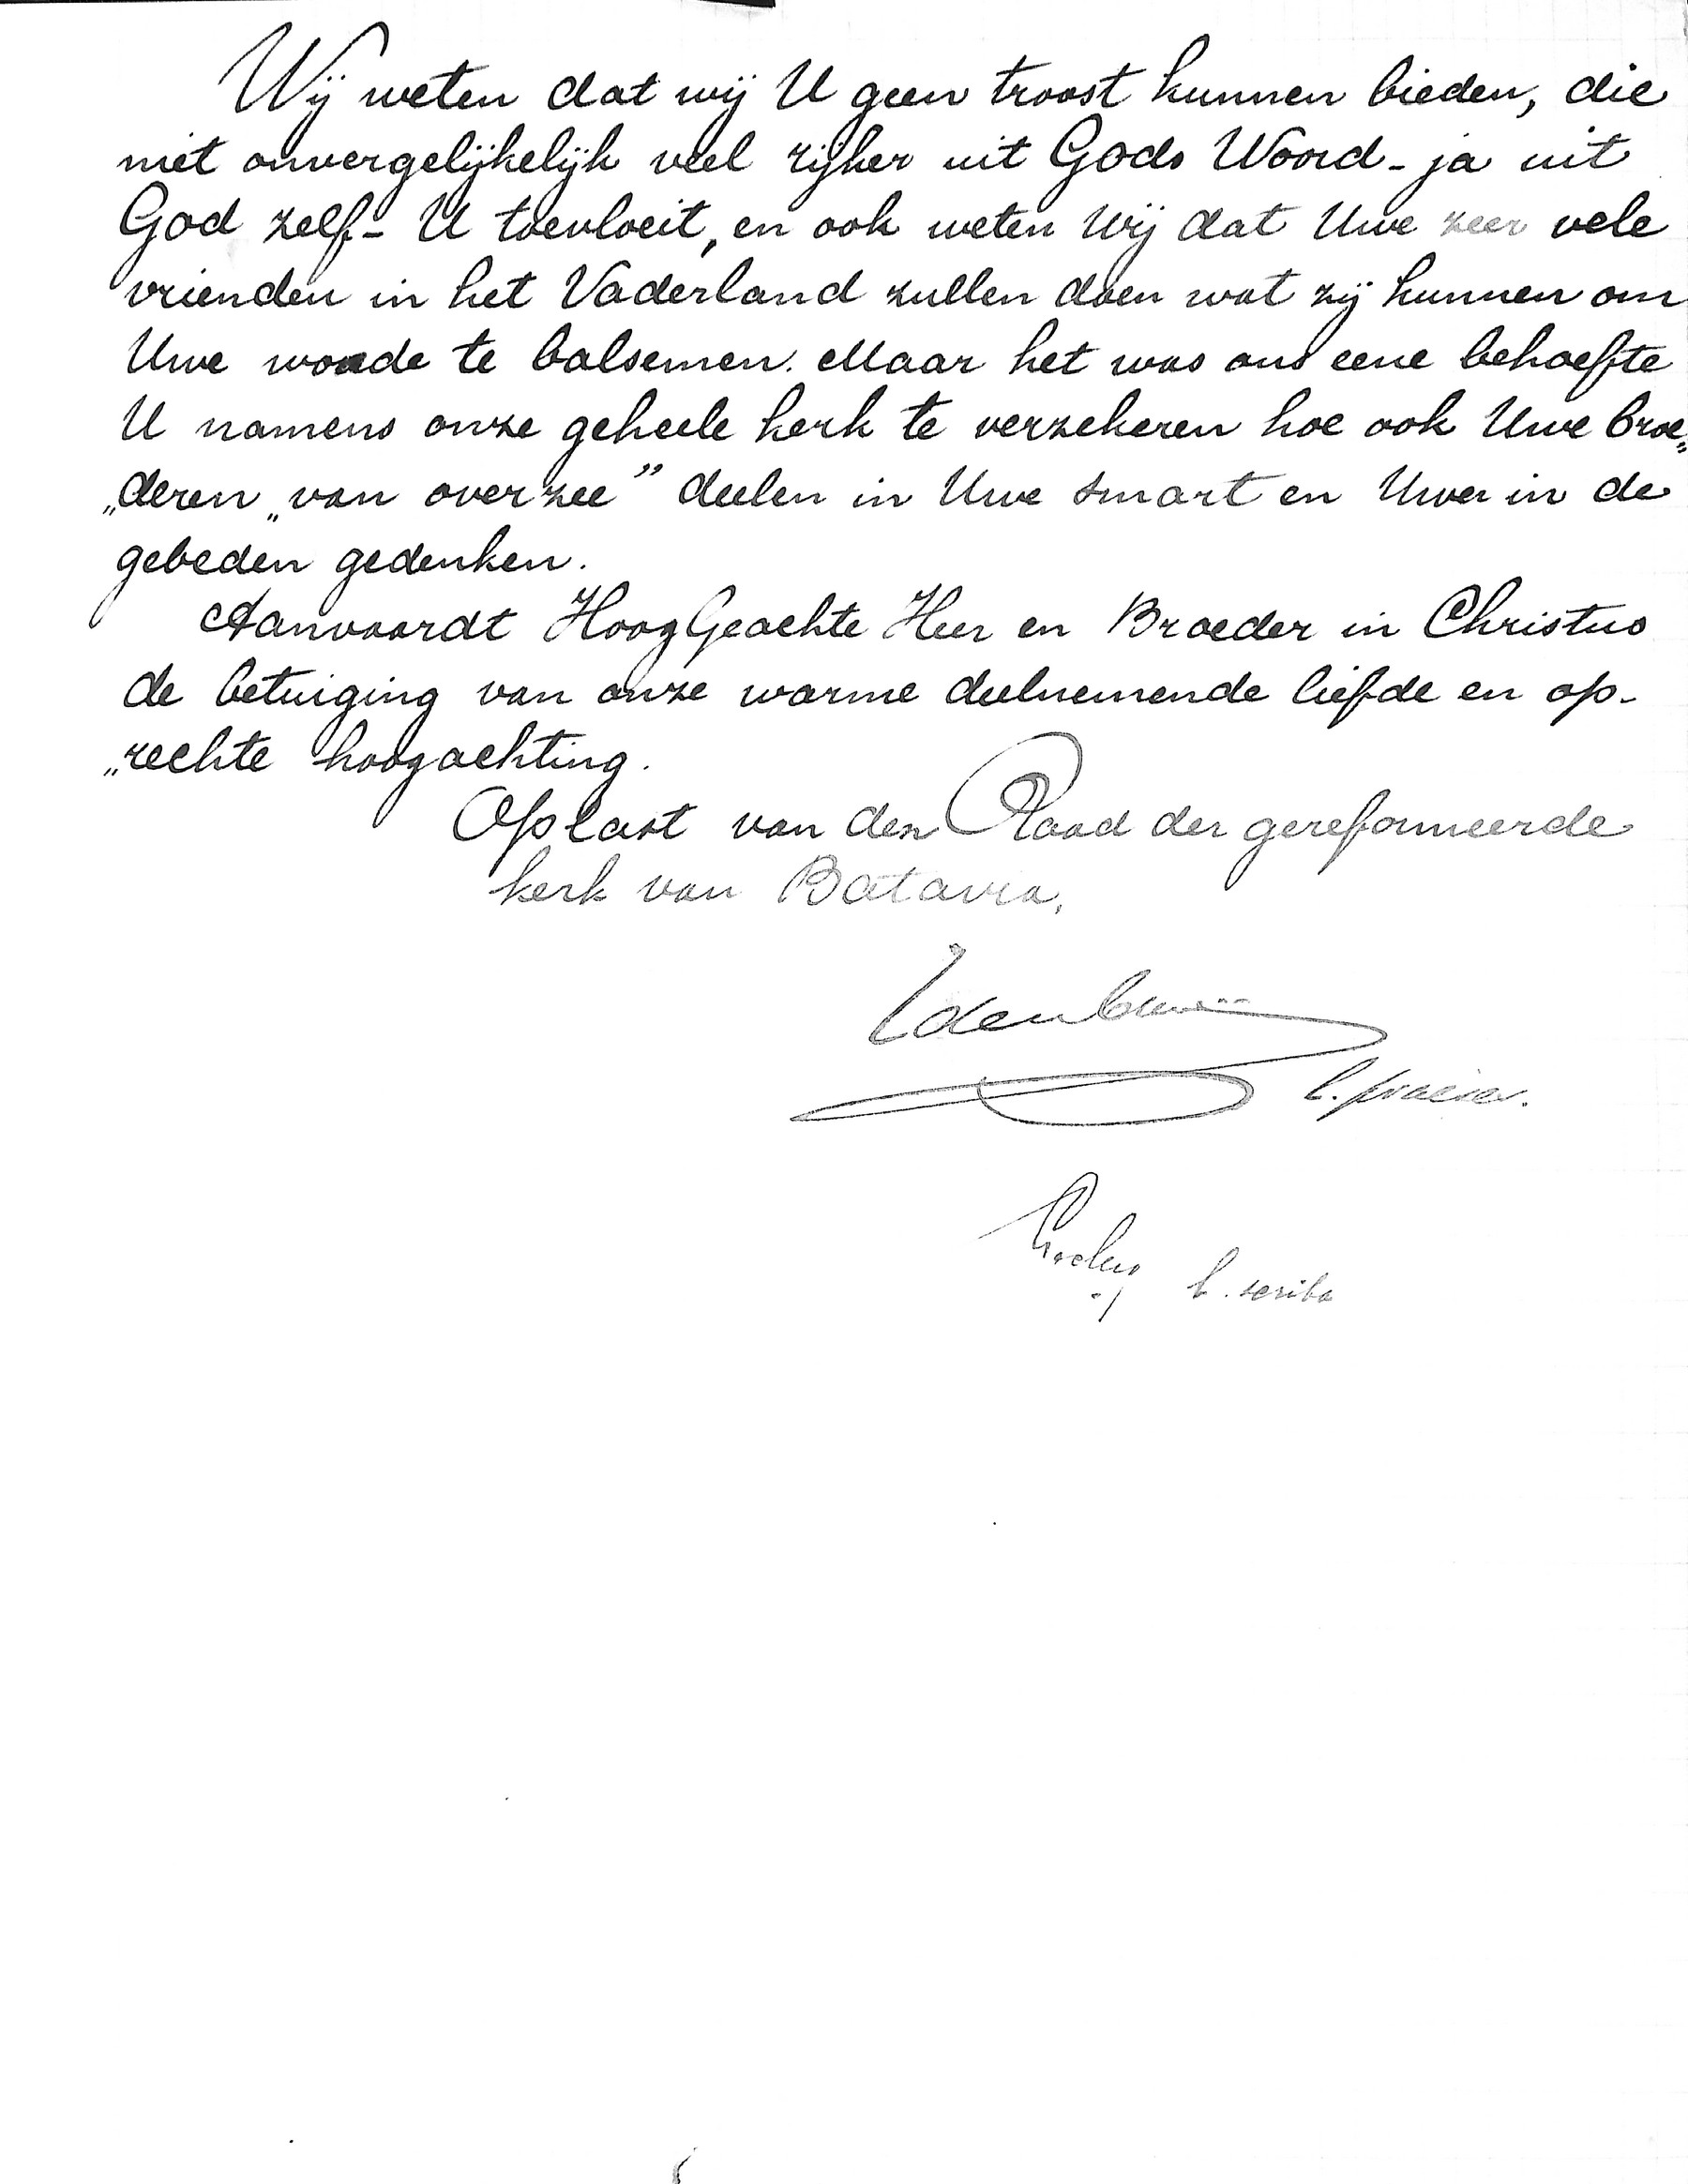 Wij weten dat wij U geen troost kunnen bieden, die
niet onvergelijkelijk veel rijker uit Gods Woord - ja uit
God zelf - U toevloeit, en ook weten wij dat Uwe zeer vele
vrienden in het Vaderland zullen doen wat zij kunnen om
Uwe wonde te balsemen. Maar het was ons eene behoefte
U namens onze geheele kerk te verzekeren hoe ook Uwe broe„
„deren „van over zee” deelen in Uwe smart en Uwer in de
gebeden gedenken.
Aanvaardt HoogGeachte Heer en Broeder in Christus
de betuiging van onze warme deelnemende liefde en op-
„rechte hoogachting.
Op last van den Raad der gereformeerde
kerk van Batavia,
Idenburg
l. praeses.
l. scriba